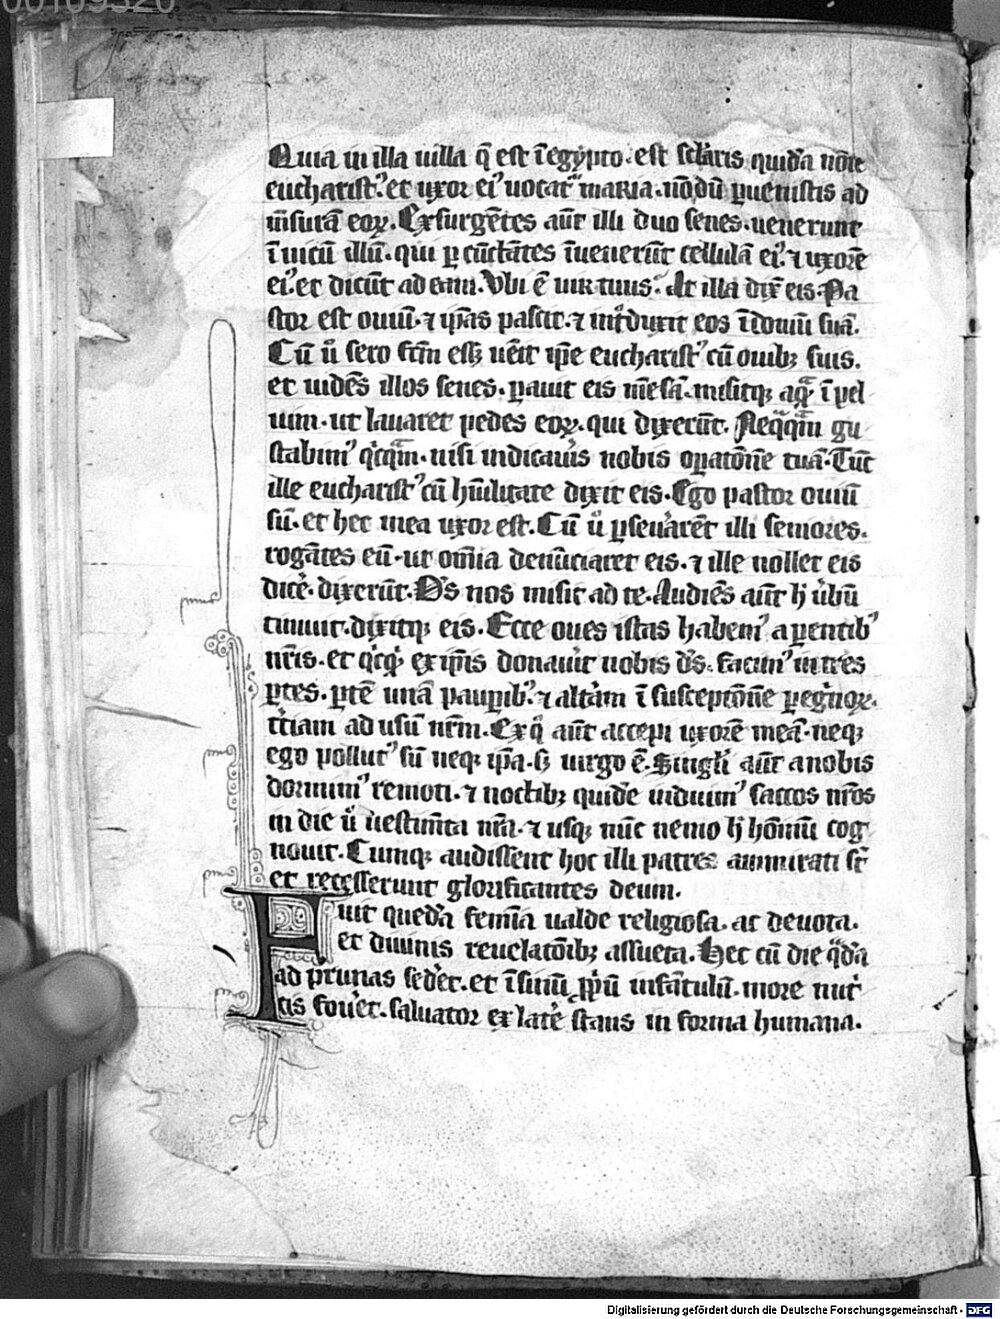 00109320
Quia in illa uilla q̄ est ī egypto. est sclaris quidā nōīe
eucharist᾽. et uxor ei᾽ uocat᾽ maria. nōdū ꝑuenistis ad
mēsurā eoꝝ. Exsurgētes aūt illi duo senes. uenerunt
ī uicū illū. qui ꝑcūctātes īuenerūt cellulā ei᾽. ⁊ uxorē
ei᾽. et dicūt ad eam. Vbi ē uir tuus. At illa dix̄ eis. Pa
stor est ouiū. ⁊ ip̄as pascit. ⁊ int͛duxit eos ī domū suā.
Cū ů sero fc̄m ess₃ uēit ip̄e eucharist᾽ cū ouib₃ suis.
et uidēs illos senes. ꝑauit eis mēsā. misitq₃ aqͣ ī pel
uim. ut lauaret pedes eoꝝ. qui dixerūt. Neqͣqͣm gu
stabim᾽ qͥcqͣm. nisi indicaueris nobis oꝑatōnē tuā. Tūc
ille eucharist᾽ cū hūilitate dixit eis. Ego pastor ouiū
sū. et hec mea uxor est. Cū ů ꝑseuerarēt illi seniores.
rogātes eū. ut om̄ia denūciaret eis. ⁊ ille nollet eis
dicē͛. dixerūt. D̄s nos misit ad te. Audiēs aūt h̵ u͛bū
timuit. dixitq₃ eis. Ecce oues istas habem᾽ a ꝑentib᾽
nr̄is. et qͥcqͥd ex ip̄is donau͛it nobis d̄s. facim᾽ in tres
ꝑtes. ꝑtē unā pauꝑib᾽. ⁊ alt͛am ī susceptōnē ꝑegͥnoꝝ.
t͛ciam ad usū nr̄m. Ex qͦ aūt accepi uxorē meā. neq₃
ego pollut᾽ sū neq₃ ip̄a. s₃ uirgo ē. Singl̄i aūt a nobis
dormim᾽ remoti. ⁊ noctib₃ quidē induim᾽ saccos nr̄os
in die ů uestim̄ta nr̄a. ⁊ usq₃ nūc nemo h̵ hōīnū cog
nouit. Cumq₃ audissent hoc illi patres ammirati sūt
et recesserunt glorificantes deum.
Fuit quedā femīa ualde religiosa. ac deuota.
et diuinis reuelatōib₃ assueta. Hec cū die qͣdā
ad prunas sed͛et. et ī sinū ꝓpͥū infātulū. more nut͛
cis fou͛et. saluator ex lat͛e stans in forma humana.
Digitalisierung gefördert durch die Deutsche Forschungsgemeinschaft - DFG